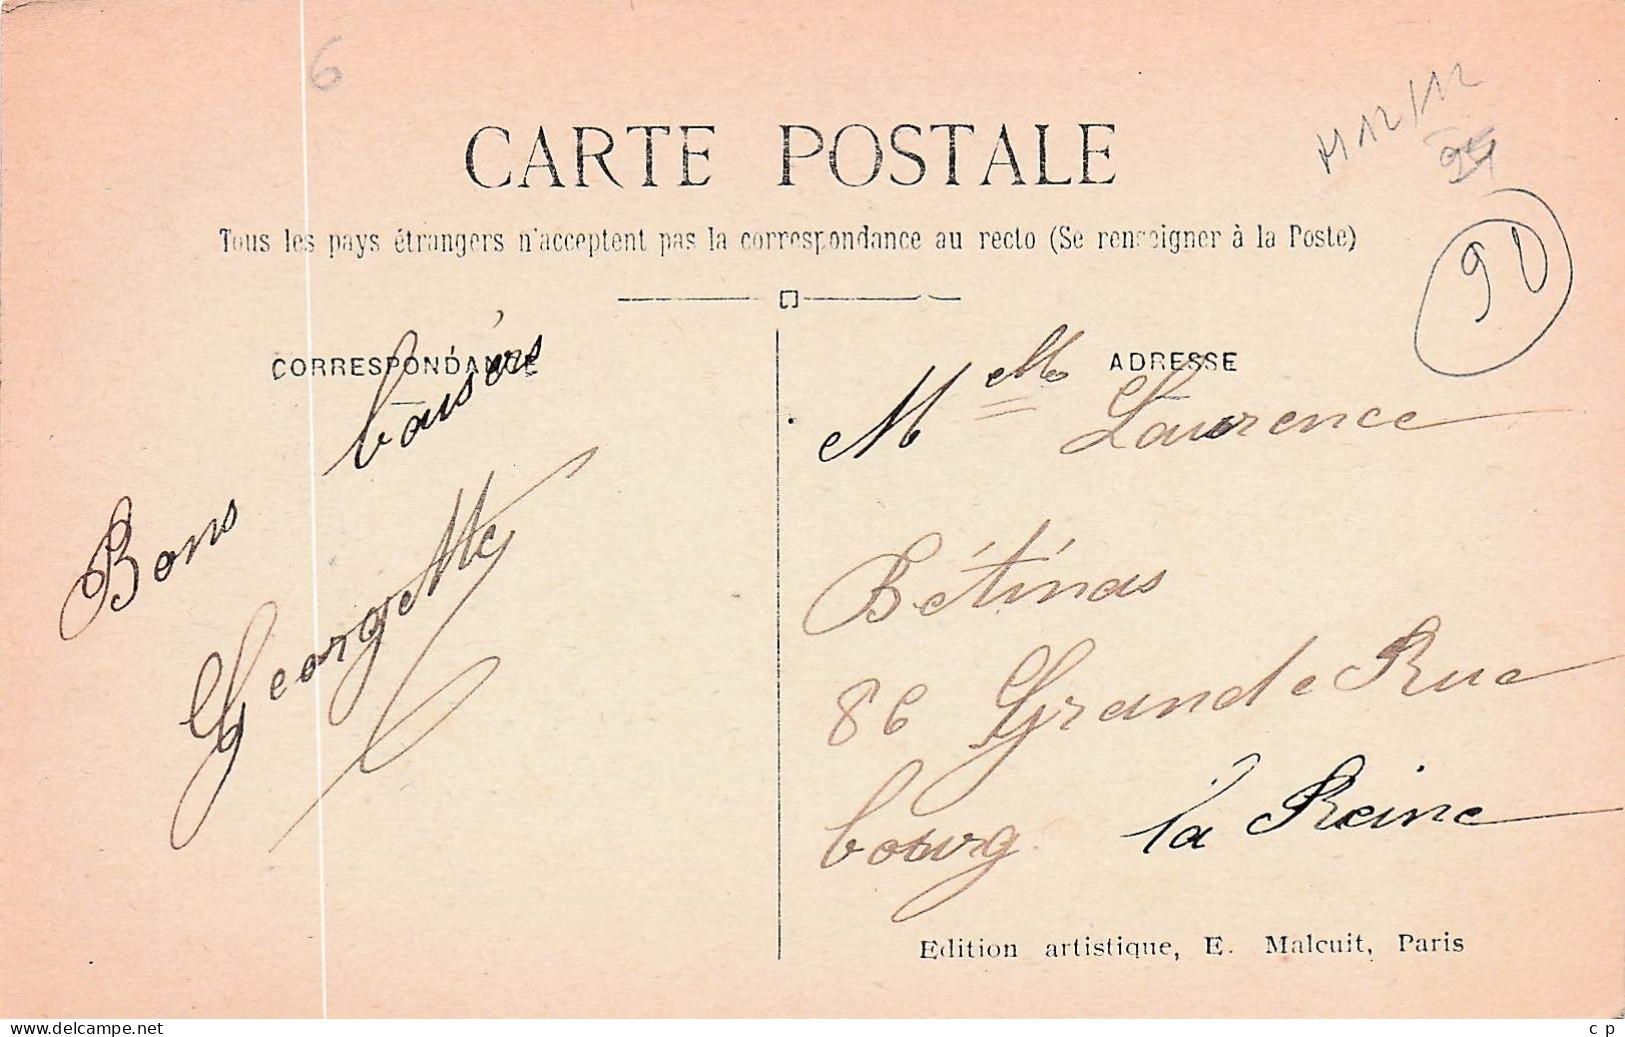 6
M12/12
CARTE POSTALE
90
Tous les pays étrangers n'acceptent pas la correspondance au recto (Se renseigner à la Poste)
CORRESPONDANCE
Bons baisers
Georgette
ADRESSE
Melle Laurence
Bétinas
86 Grande Rue
bourg la Reine
Edition artistique, E. Malcuit, Paris
www.delcampe.net
c p